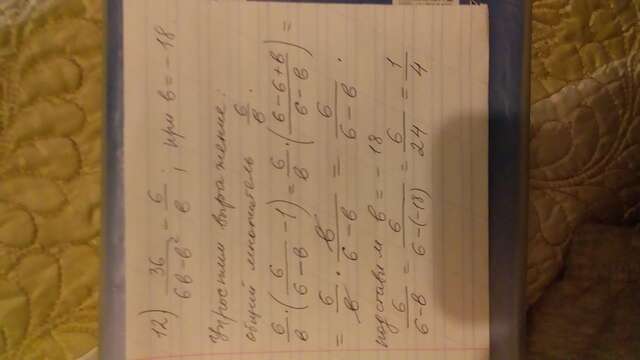 12) 36/(6в-в²) - 6/в ; при в = -18.
Упростим выражение:
общий множитель 6/в.
6/в · (6/(6-в) - 1) = 6/в · ((6-6+в)/(6-в)) =
= 6/в · в/(6-в) = 6/(6-в) .
подставим в = -18
6/(6-в) = 6/(6-(-18)) = 6/24 = 1/4